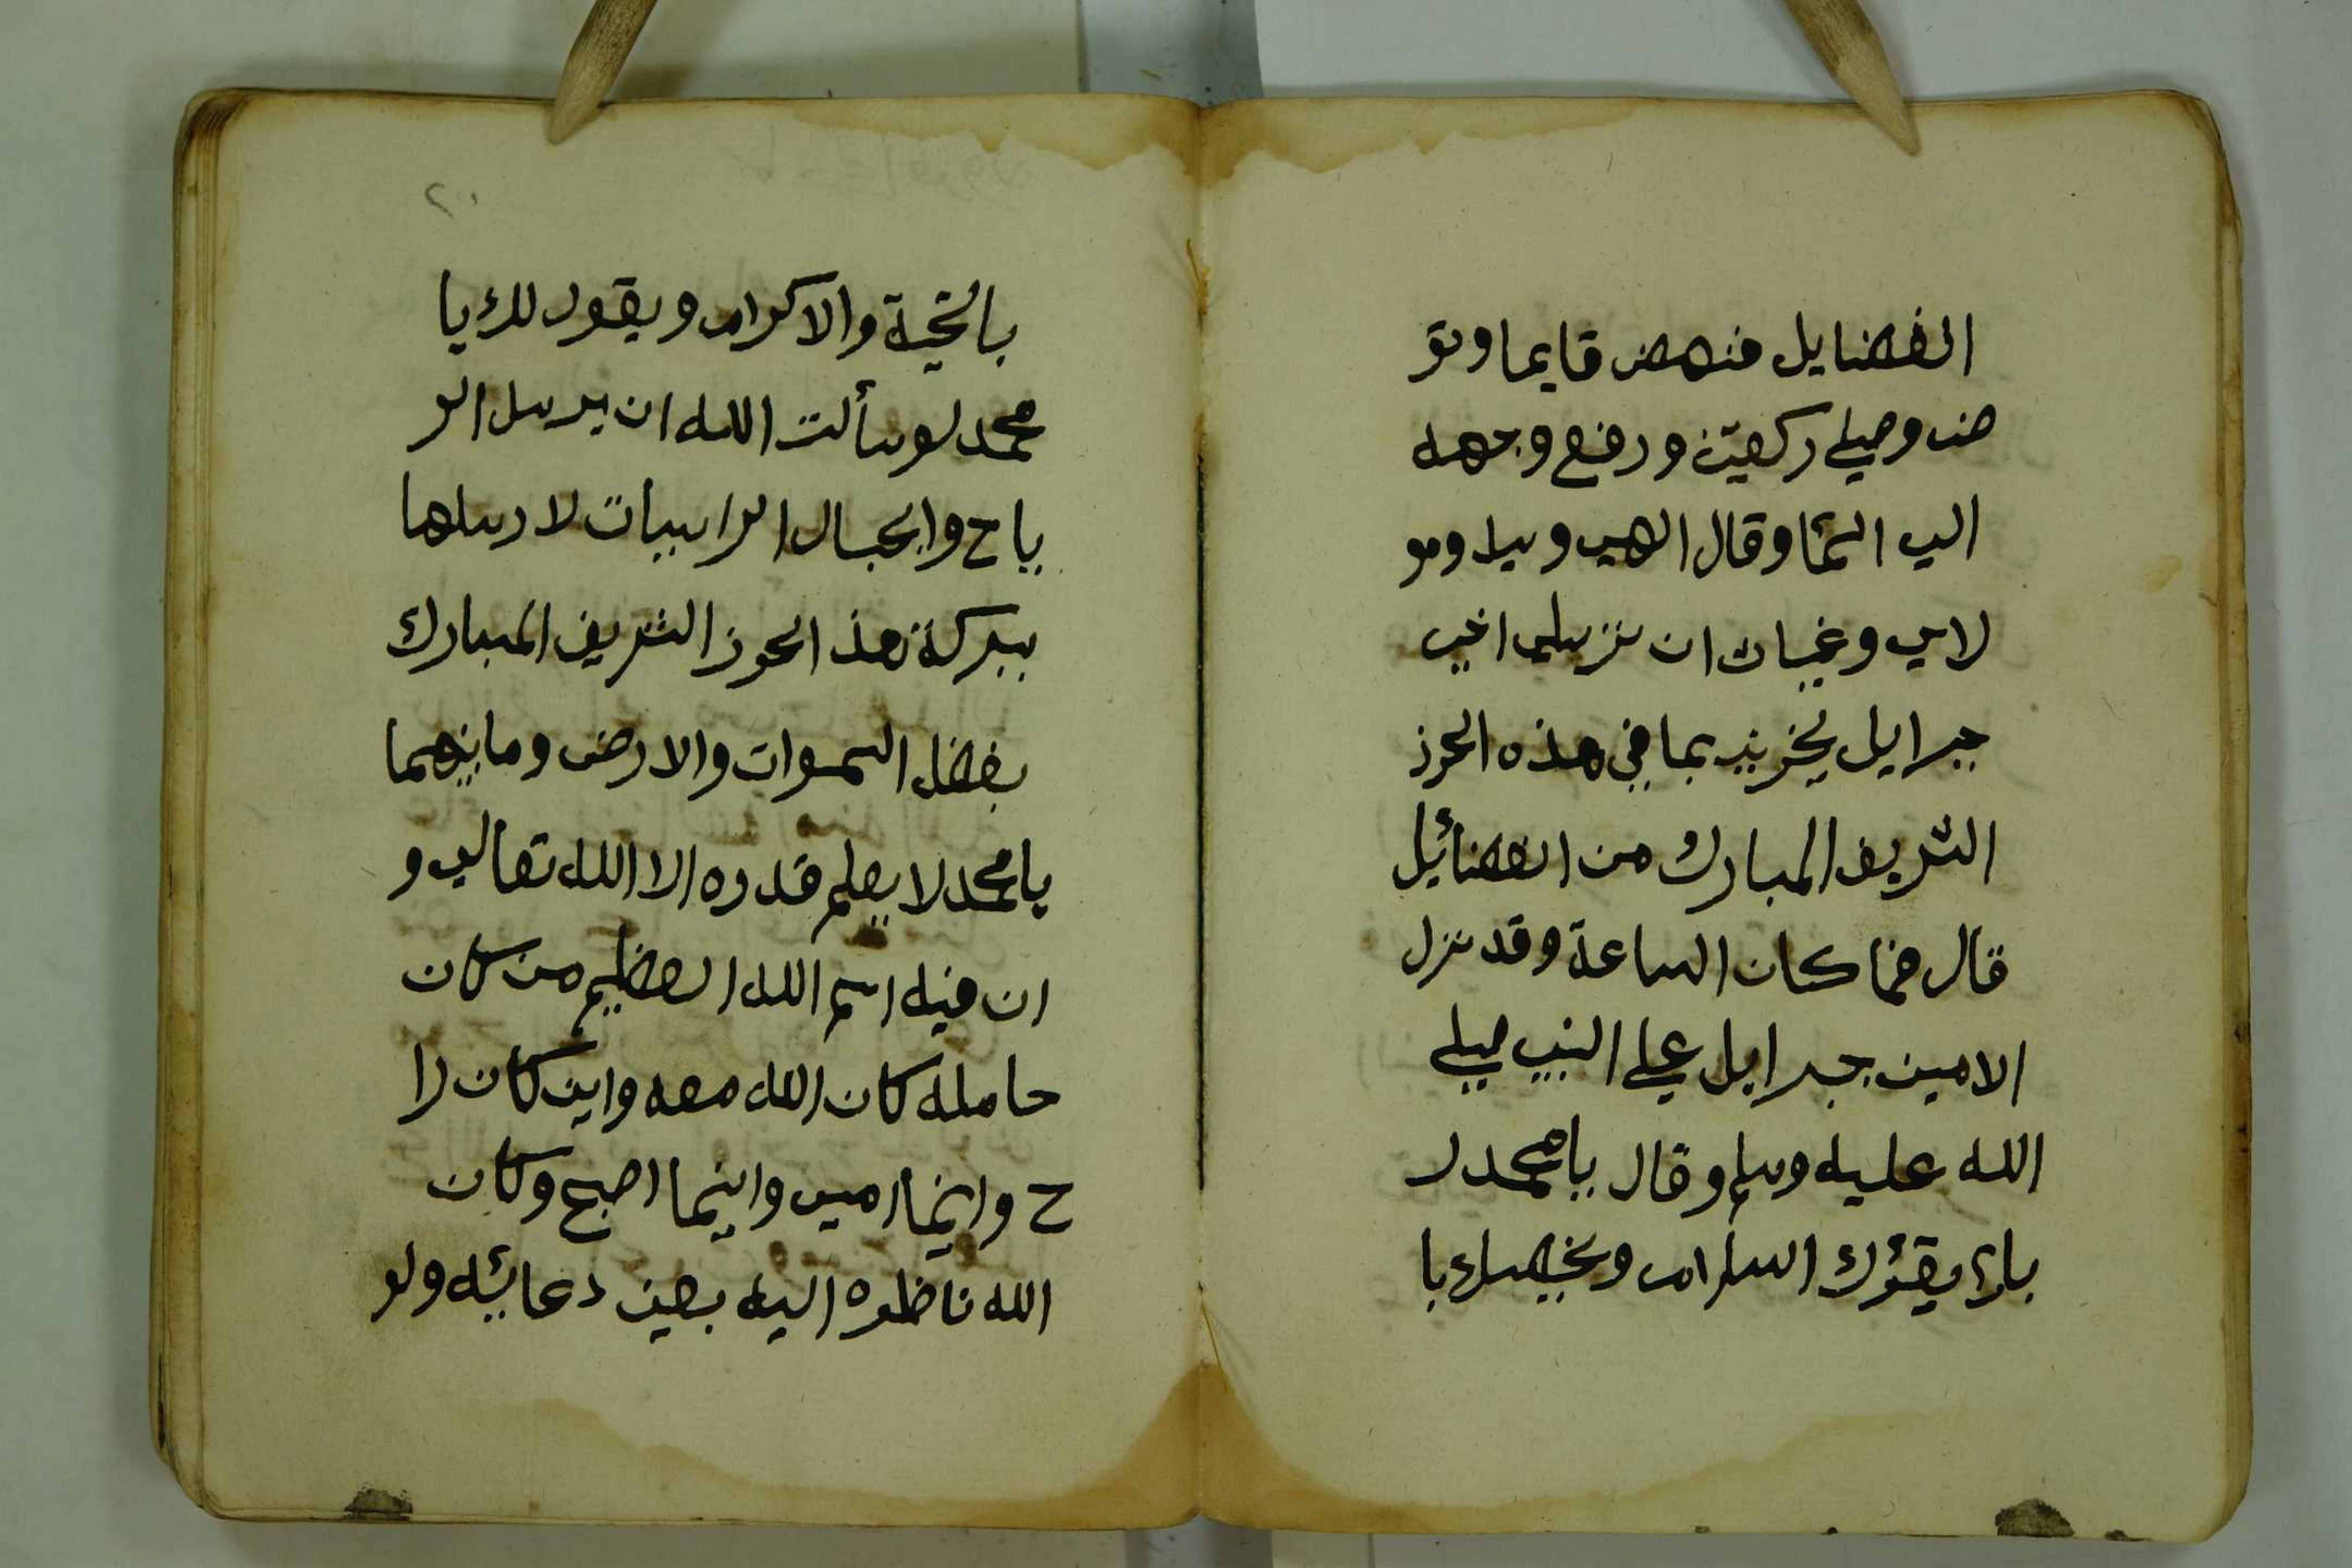 الفضايل فنهض قايما وتو
ضى وصلي ركعتين ورفع وجهه
الي السما وقال الهي وسيدي ومو
لاي وغياث ان تزسلي اخي
جبرايل يخبرني بما في هذه الحرز
الشريف المبارك من الفضائيل
قال فما كان الساعة وقد نزل
الامين جبرايل علي النبي صلي
الله عليه وسلم وقال يا محمد ر
باك يقرؤك السلام ويخصك با
٢٠
بالتحية والاكرام ويقول لك يا
محمد لو سألت الله ان يرسل الر
ياح والجبال الراسيات لارسلها
ببركة هذ الحرز الشريف المبارك
بفضل السموات والارض وما بينهما
يا محمد لا يعلم قدره الا الله تعالي و
ان فيه اسم الله العظيم من كان
حامله كان الله معه واين كان را
ح واينما امسي واينما اصبح وكان
الله ناظره اليه بعين دعائيه ولو